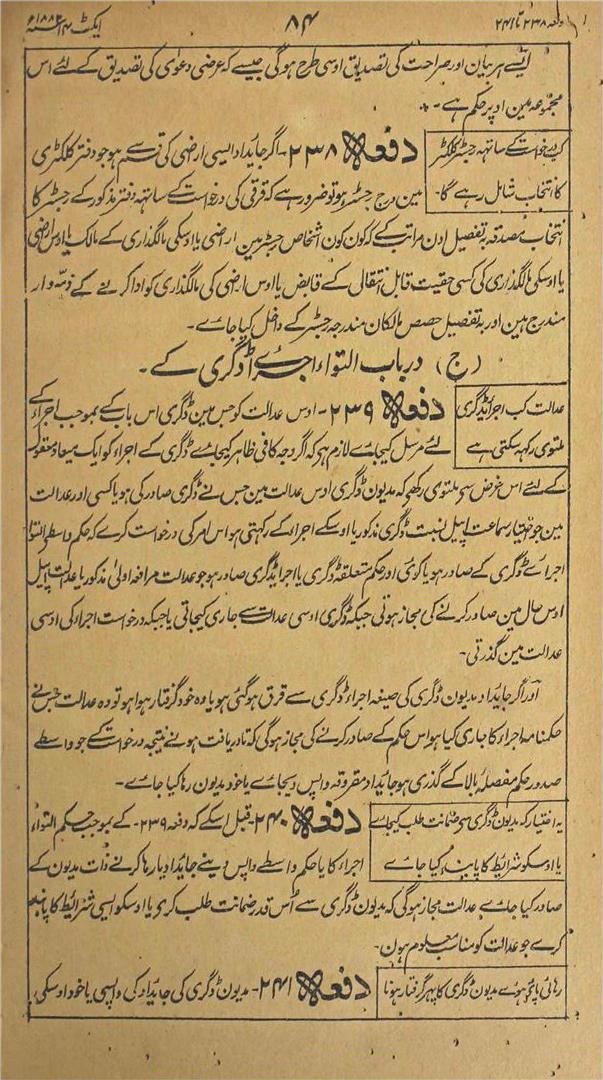 دفعہ ۲۳۸ تا ۲۴۱
۸۴
ایکٹ ۱۴ سنہ ۱۸۸۲ء
ایسے ہر بیان اور صراحت کی تصدیق اوسی طرح ہوگی جیسے کہ عرضی دعوٰی کی تصدیق کے لئے اس
مجموعہ مین اوپر حکم ہے ۔
کب درخواست کے ساتھہ رجسٹر کلکٹر
کا انتخاب شامل رہے گا ۔
دفعہ ۲۳۸ ۔ اگر جائداد ایسی ارضی کی قسم سے ہو جو دفتر کلکٹری
مین درج رجسٹر ہو تو ضرور ہے کہ قرقی کی درخواست کے ساتھہ دفتر مذکور کے رجسٹر کا
انتخاب مصدقہ بہ تفصیل ان مراتب کے کہ کون کون اشخاص رجسٹر مین ارضی یا اوسکی مالگذاری کے مالک یا اوس ارضی
یا اوسکی مالگذاری کی کسی حقیت قابل انتقال کے قابض یا اوس ارضی کی مالگذاری کو ادا کرنے کے ذمہ وار
مندرج ہین اور بہ تفصیل حصص مالکان مندرجہ رجسٹر کے داخل کیا جاے ۔
(ج) در باب التواء اجراے ڈگری کے ۔
عدالت کب اجراء ڈگری
ملتوی رکہہ سکتی ہے
دفعہ ۲۳۹ ۔ اوس عدالت کو جس مین ڈگری اس باب کے بموجب اجراء کے
لئے مرسل کیجاے لازم ہے کہ اگر وجہ کافی ظاہر کیجاے ڈگری کے اجراء کو ایک میعاد معقول
کے لئے اس غرض سے ملتوی رکہے کہ مدیون ڈگری اوس عدالت مین جس نے ڈگری صادر کی ہو یا کسی اور عدالت
مین جو اختیار سماعت اپیل نسبت ڈگری مذکور یا اوسکے اجراء کے رکہتی ہو اس امر کی درخواست کرے کہ حکم واسطے التوا
اجراے ڈگری کے صادر ہو یا کوئی اور حکم متعلقہ ڈگری یا اجراء ڈگری صادر ہو جو عدالت مرافعہ اولیٰ مذکور یا عدالت اپیل
اوس حال مین صادر کرنے کی مجاز ہوتی جبکہ ڈگری اوسی عدالت سے جاری کیجاتی یا جبکہ درخواست اجراء کی اوسی
عدالت مین گذرتی ۔
اور اگر جائداد مدیون ڈگری کی صیغہ اجراء ڈگری سے قرق ہوگئی ہو یا وہ خود گرفتار ہوا ہو تو وہ عدالت جس نے
حکمنامہ اجراء کا جاری کیا ہو اس حکم کے صادر کرنے کی مجاز ہوگی کہ تا دریافت ہونے نتیجہ درخواست کے جو واسطے
صدور حکم مفصلہ بالا کے گذری ہو جائداد مقروقہ واپس دیجاے یا خود مدیون رہا کیا جاے ۔
یہ اختیار کہ مدیون ڈگری سے ضمانت طلب کیجاے
یا اوسکو شرائط کا پابند کیا جاے
دفعہ ۲۴۰ ۔ قبل اسکے کہ دفعہ ۲۳۹ ۔ کے بموجب حکم التواء
اجراء کا یا حکم واسطے واپس دینے جائداد یا رہا کرنے ذات مدیون کے
صادر کیا جاے عدالت مجاز ہوگی کہ مدیون ڈگری سے اُس قدر ضمانت طلب کرے یا اوسکو ایسی شرائط کا پابند
کرے جو عدالت کو مناسب معلوم ہون ۔
رہائی پائے ہوے مدیون ڈگری کا پہر گرفتار ہونا
دفعہ ۲۴۱ ۔ مدیون ڈگری کی جائداد کی واپسی یا خود اوسکی